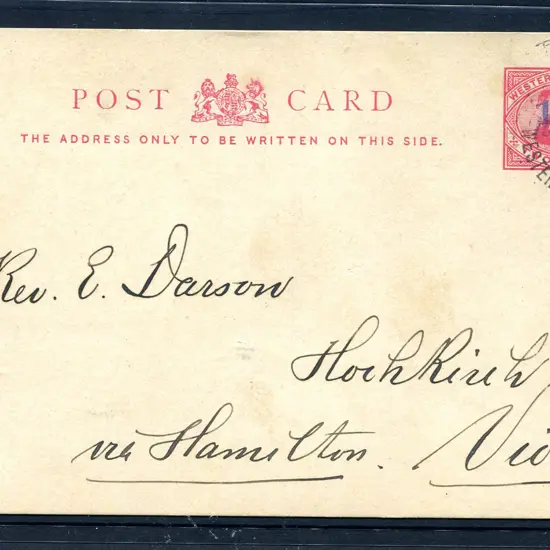 POST CARD
THE ADDRESS ONLY TO BE WRITTEN ON THIS SIDE.
WESTER
WESTE
Rev. E. Darson
Hochkirch
via Hamilton. Vic